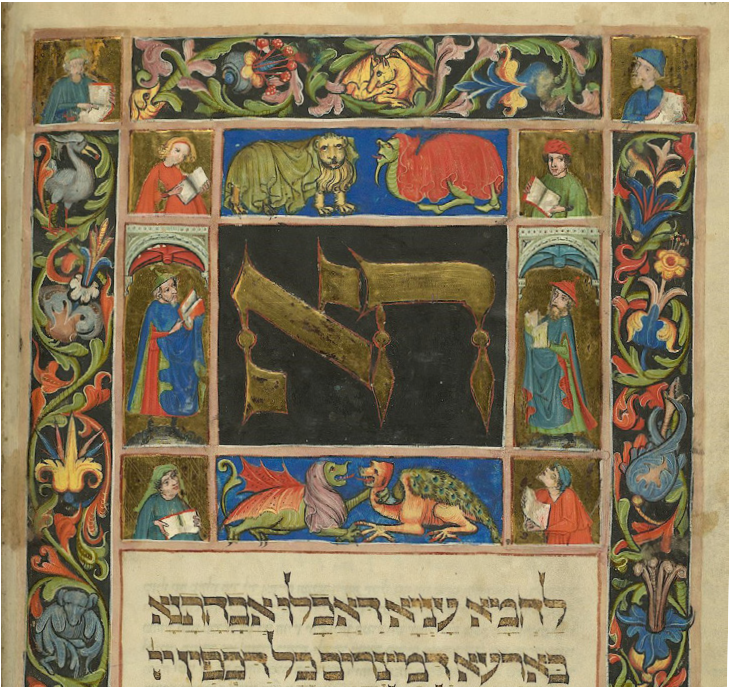 הא
לחמא עניא דאכלו אבהתנא
בארעא דמצרים כל דכפין יי